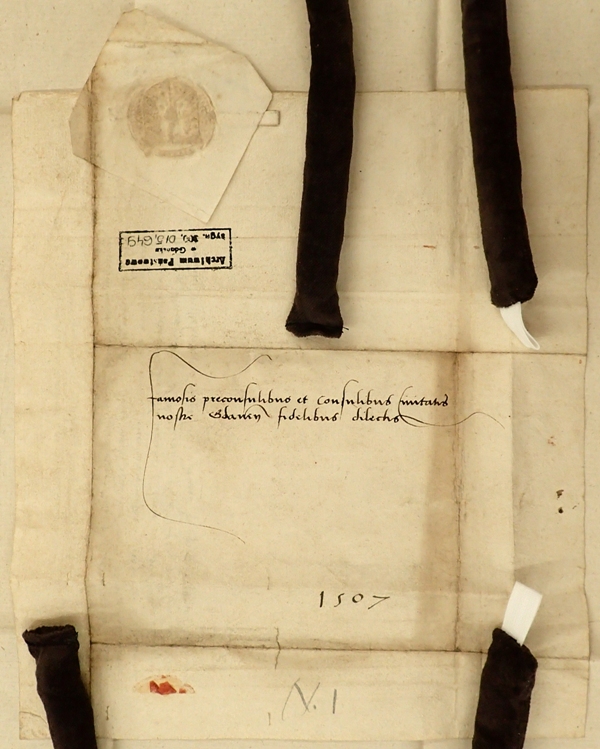 Archiwum Państwowe
w Gdańsku
sygn. 300, D/5, 649
famosis preconsulibus et Consulibus Civitatis
nostre Gdanen fidelibus dilectis
1507
N. 1